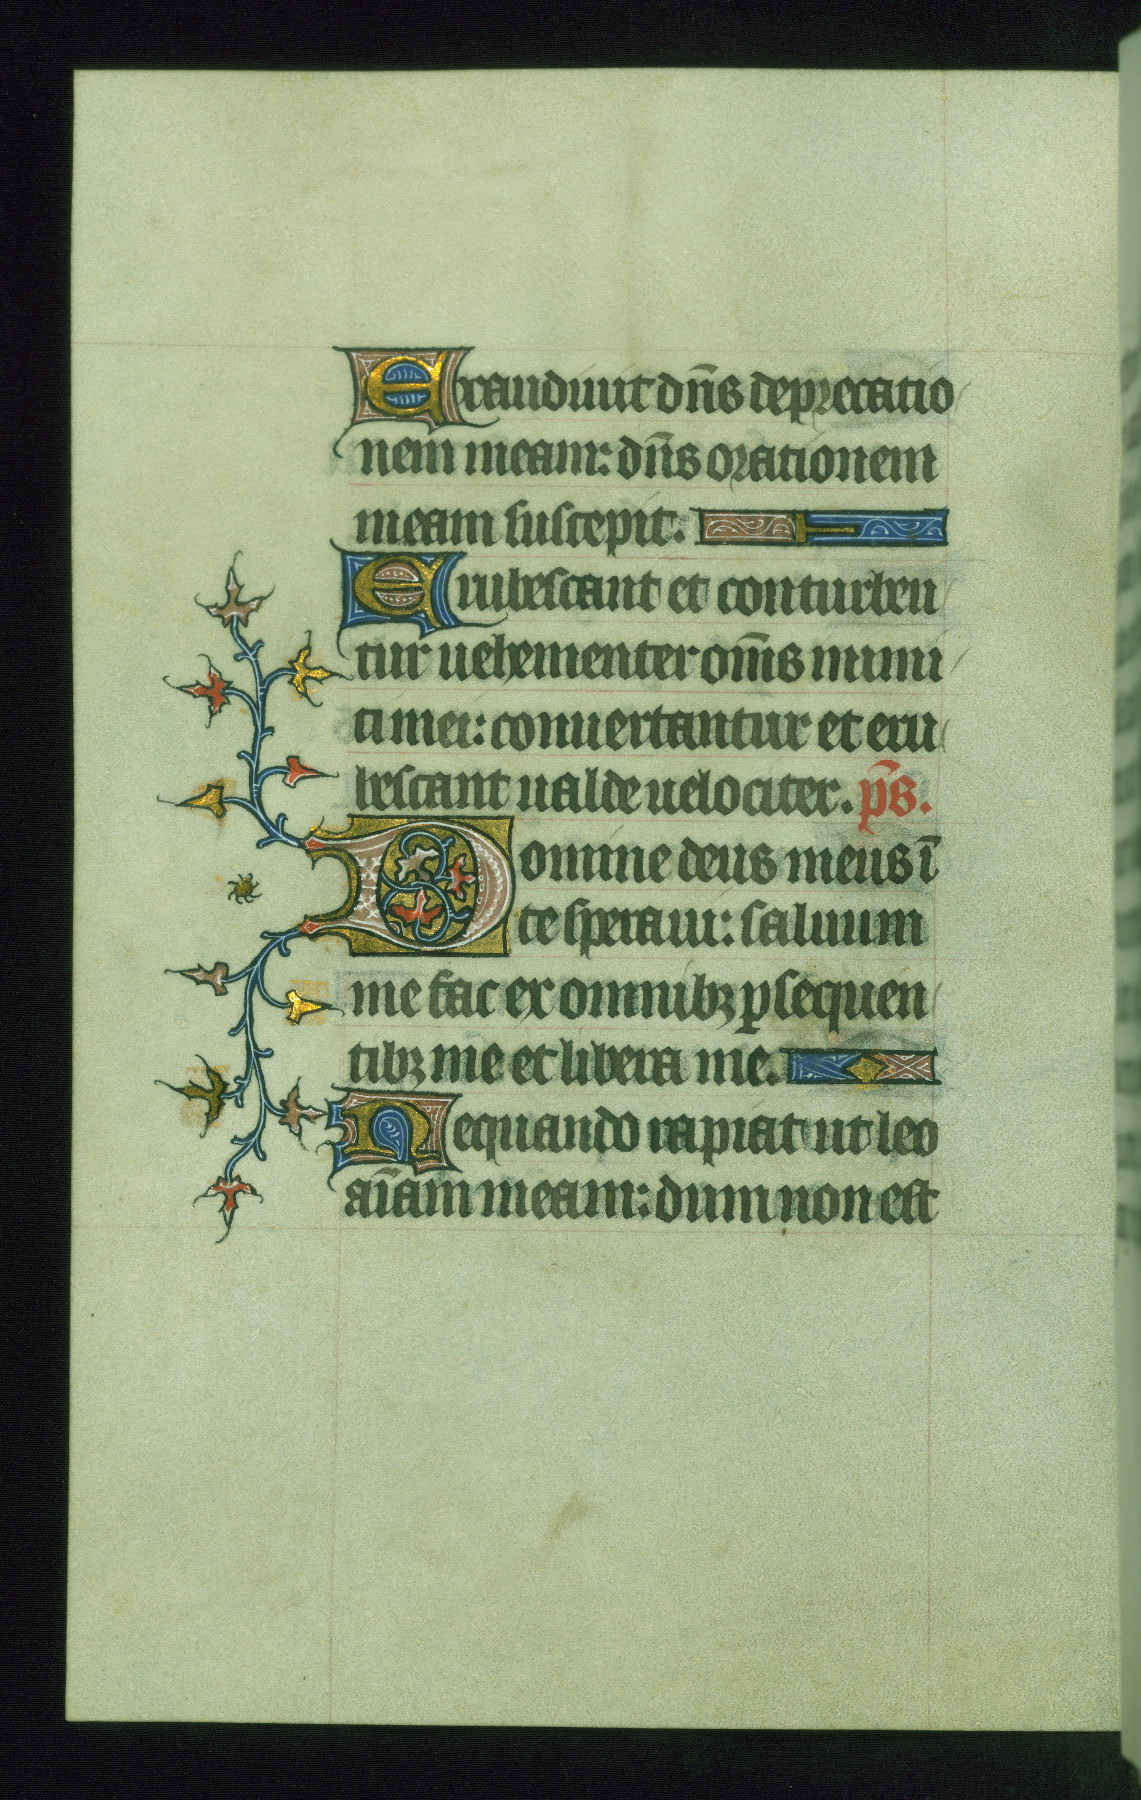 Exaudiuit dn̄s deprecatio
nem meam: dn̄s orationem
meam suscepit.
Erubescant et conturben
tur uehementer om̄s inimi
ci mei: conuertantur et eru
bescant ualde uelociter. p̄s.
Domine deus meus ī
te speraui: saluum
me fac ex omnibꝫ ꝑsequen
tibꝫ me et libera me.
Nequando rapiat ut leo
aīam meam: dum non est